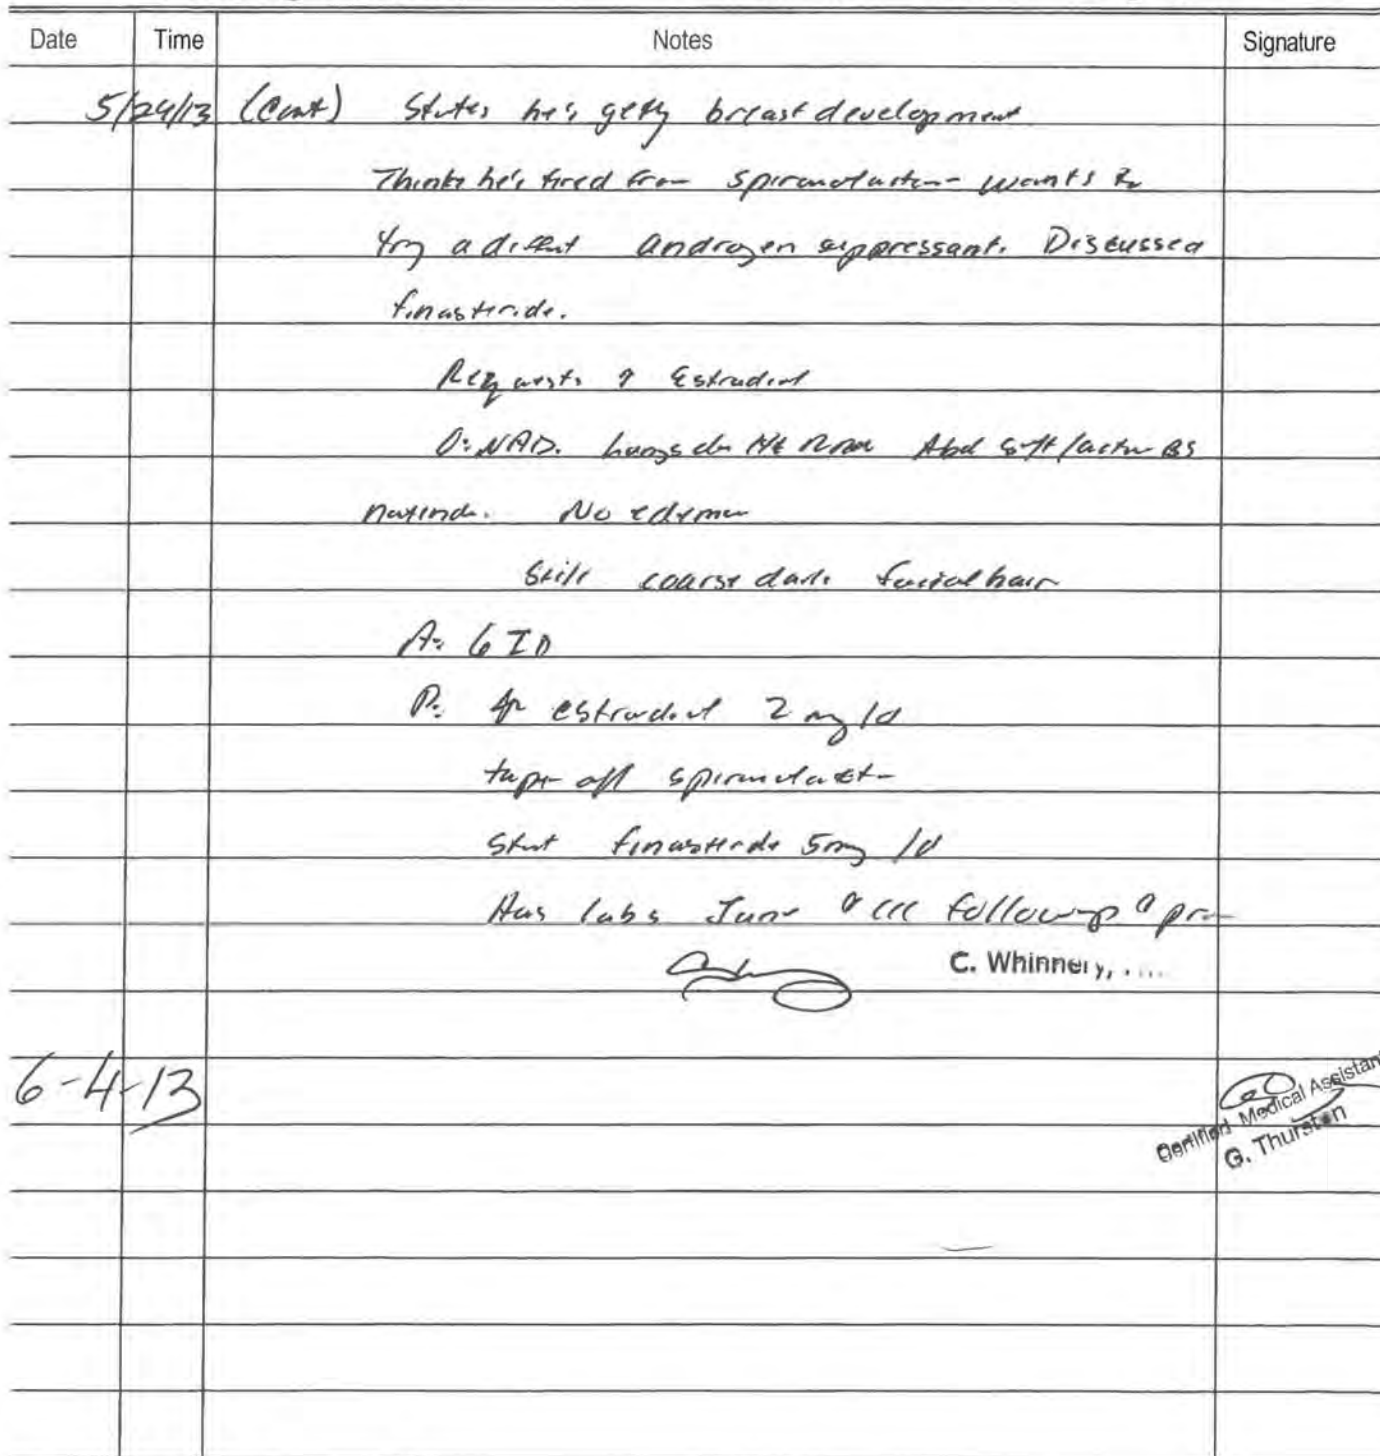 Date Time Notes Signature
5/24/13 (Cont) States he's getting breast development
Thinks he's tired from spironolactone wants to
try a different androgen suppressant. Discussed
finasteride.
Requests ↑ Estradiol
O: NAD. Lungs clr Abd soft/active BS
No edema
Still coarse dark facial hair
A: GID
P: ↑ estradiol 2 mg/d
taper off spironolactone
Start finasteride 5mg/d
Has labs June follow up
C. Whinnery,
6-4-13
Certified Medical Assistant
G. Thurston